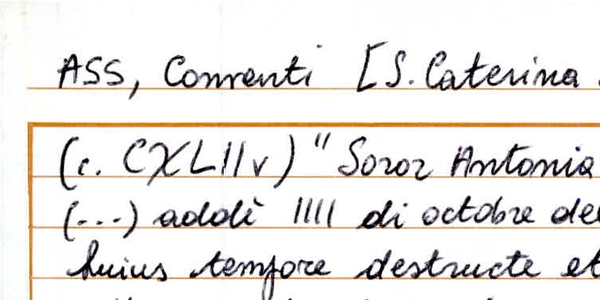 ASS, Conventi [S. Caterina
(c. CXLIIv) "Soror Antonia
(...) addì IIII di octobre de
huius tempore destructe et